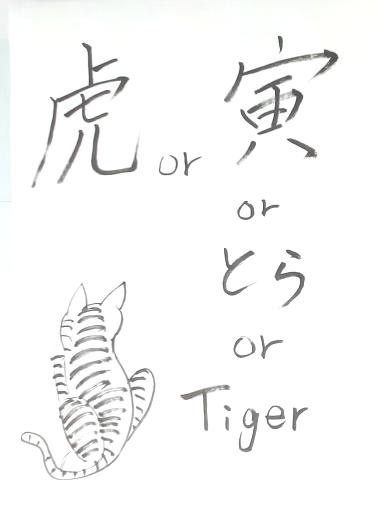 虎 or 寅
or
とら
or
Tiger